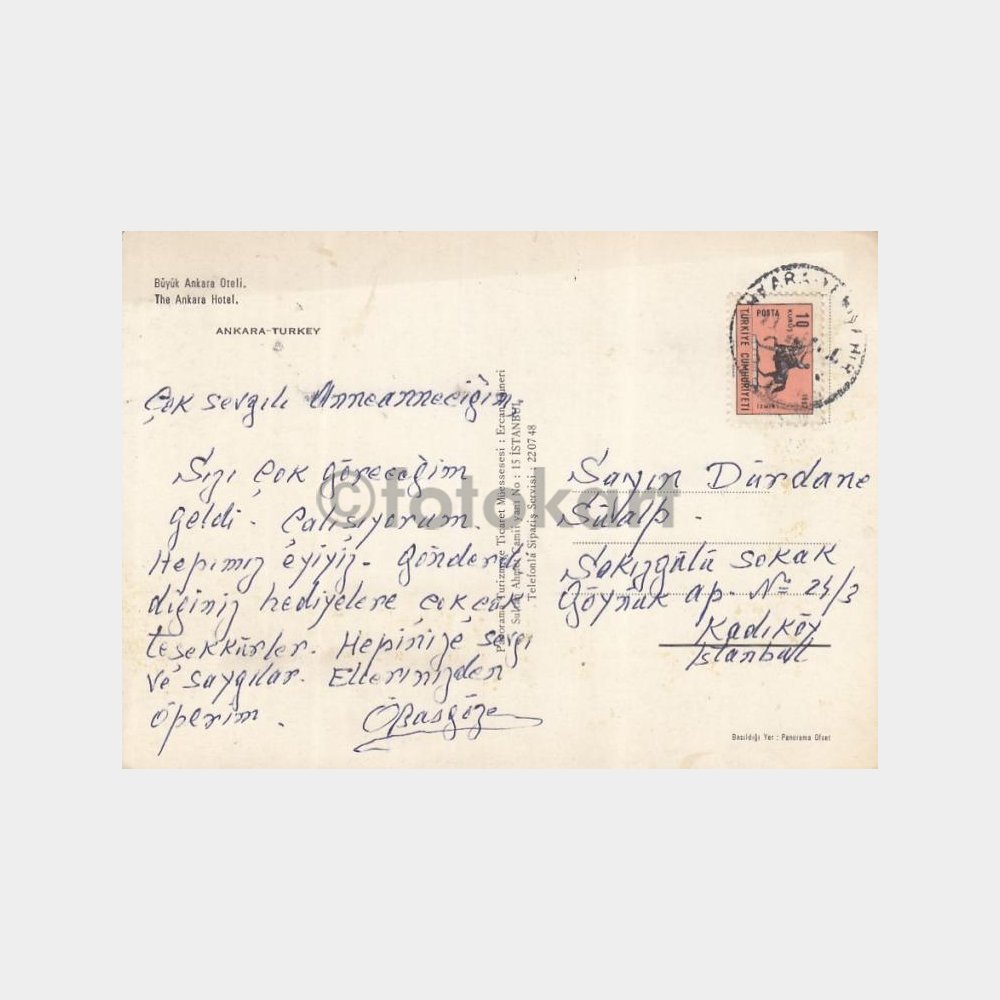 Büyük Ankara Oteli.
The Ankara Hotel.
ANKARA-TURKEY
Çok sevgili Anneanneciğim,
Sizi çok göreceğim
geldi. Çalışıyorum
Hepimiz eyiyiz. Gönderdi
diğiniz hediyelere çok çok
teşekkürler. Hepinize sevgi
ve saygılar. Ellerinizden
öperim.
ÖBasgöze
Panorama Turizm ve Ticaret Müessesesi : Ercan Güneri
Sultan Ahmet Camii yanı No : 15 İSTANBUL
Telefonla Sipariş Servisi . 22 07 48
ANKARA-YENİŞEHİR
POSTA
10
KURUŞ
TÜRKİYE CUMHURİYETİ
Sayın Dürdane
Sülalp.
Sakızgülü sokak
Göynük ap. No 24/3
Kadıköy
İstanbul
Basıldığı Yer : Panorama Ofset
©fotokart